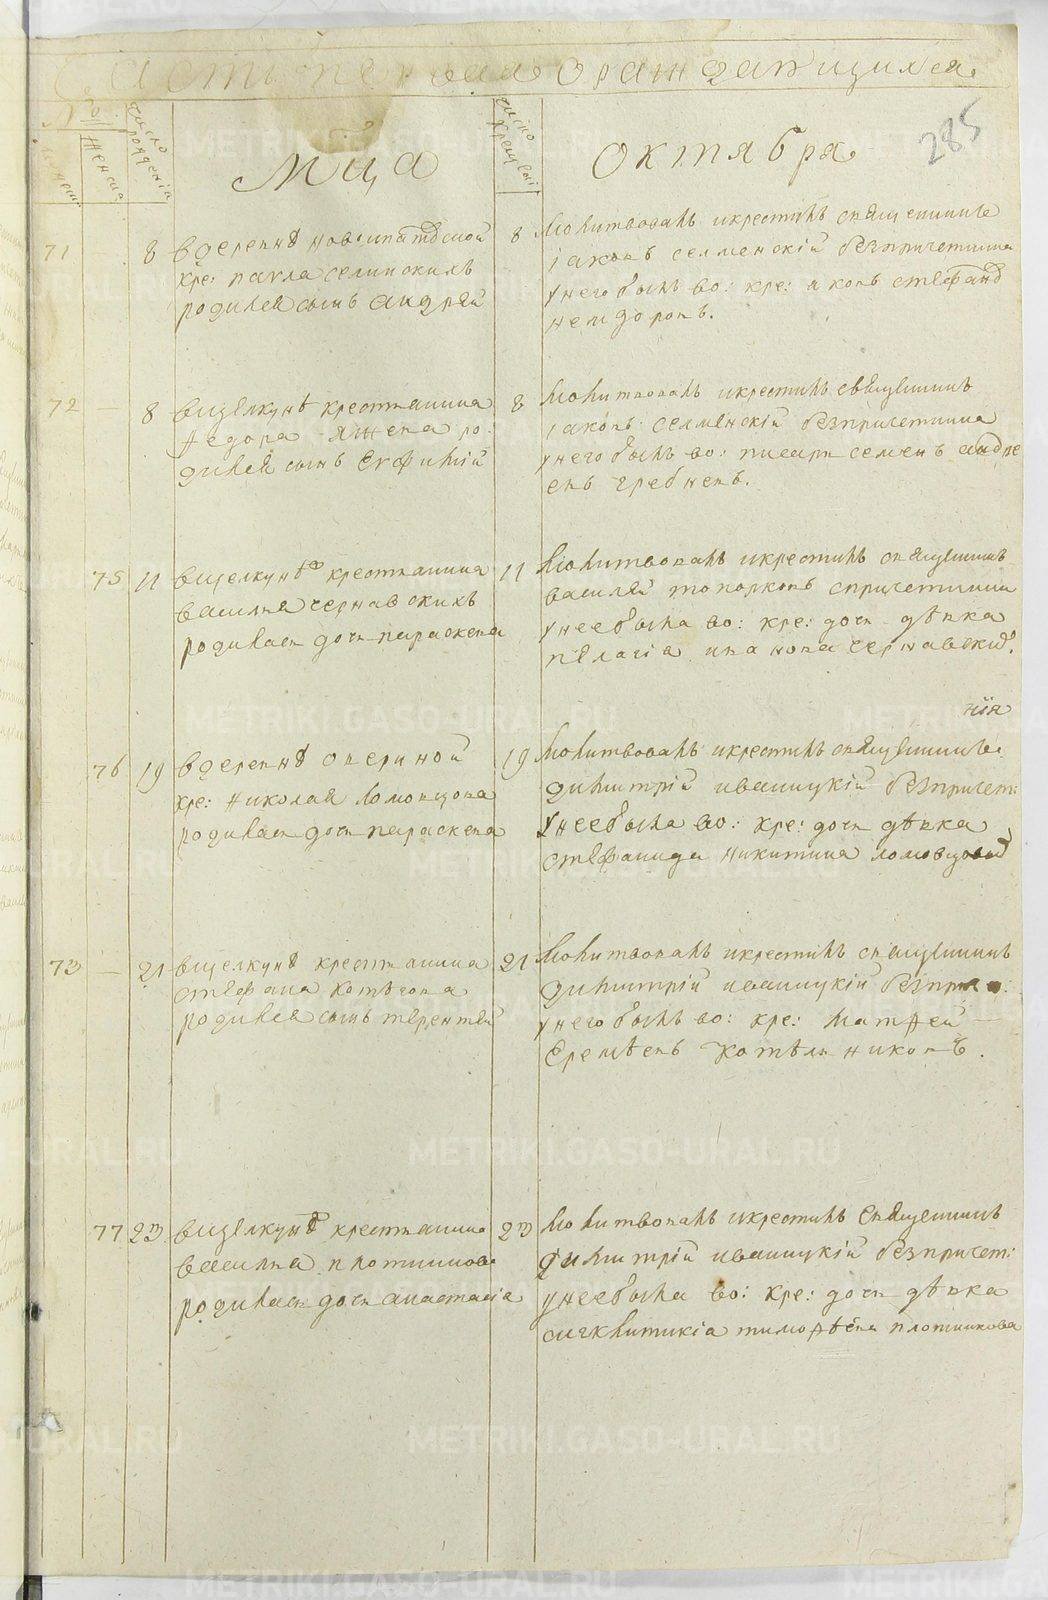 Часть первая о раждающихся.
№
женска
число рожденія
число крещенія
Мца
Октября
285
71
8
в деревнѣ новоипатовской
кре: павла селинскихъ
родился сынъ андрей
8
Молитвовалъ и крестилъ священникъ
іаковъ селменскій безпричетника
у него былъ во: кре: яковъ
72
8
в щелкунѣ крестьянина
Федора
родился сынъ Евфимій
8
Молитвовалъ и крестилъ священникъ
іаковъ селменскій безпричетника
у него былъ во: писарь семенъ андре
евъ гребневъ.
75
11
в щелкунѣ крестьянина
василья чернавскихъ
родилась дочь параскева
11
Молитвовалъ и крестилъ священникъ
василей топорковъ с причетники
у нее была во: кре: дочь дѣвка
пелагіа иванова чернавски.
нія
76
19
в деревнѣ аверіной
кре: Николая ломовцова
родилась дочь параскева
19
Молитвовалъ и крестилъ священникъ
димитрій иваницкій безпричет:
у нее была во: кре: дочь дѣвка
стефанида никитина ломовцова
73
21
в щелкунѣ крестьянина
стефана
родился сынъ терентей
21
Молитвовалъ и крестилъ священникъ
димитрій иваницкій безпри
у него былъ во: кре: Матфей
Еремѣевъ котѣльниковъ.
77
23
в щелкунѣ крестьянина
василья плотникова
родилась дочь анастасіа
23
Молитвовалъ и крестилъ священникъ
димитрій иваницкій безпричет:
у нее была во: кре: дочь дѣвка
сигклитикіа тимофѣева плотникова
METRIKI.GASO-URAL.RU